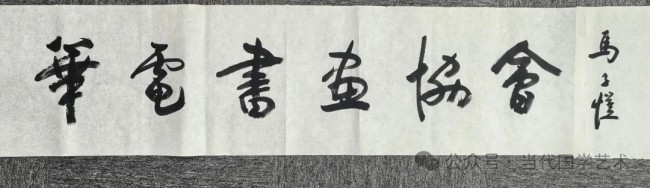 華電書畫協會
馬子愷
公众号 · 当代国学艺术